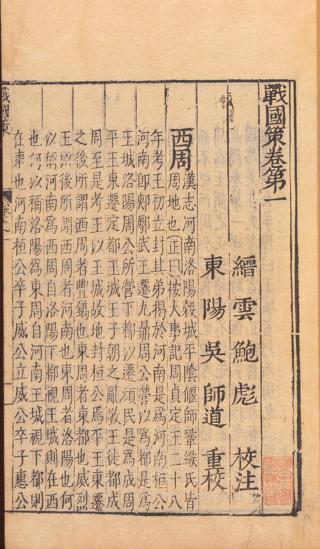 戰國策卷第一
縉雲鮑彪校注
東陽吳師道重校
西周漢志河南洛陽穀城平陰偃師鞏緱氏皆
周地也正曰按大事記周貞定王二十八
年考王初立封其弟揭於河南是爲河南桓公
河南即郟鄏武王遷九鼎周公營以爲都是爲
王城洛陽周公所營下都以遷頑民是爲成周
平王東遷定都王城王子朝之亂敬王徙都成
周至是考王以王城故地封桓公焉平王東遷
之後所謂西周者豐鎬也東周者東都也威烈
王以後所謂西周者河南也東周者洛陽也何
以稱河南爲西周自洛陽下都視王城則在西
也何以稱洛陽爲東周自河南王城視下都則
在東也河南桓公卒子威公立威公卒子惠公
戰國策